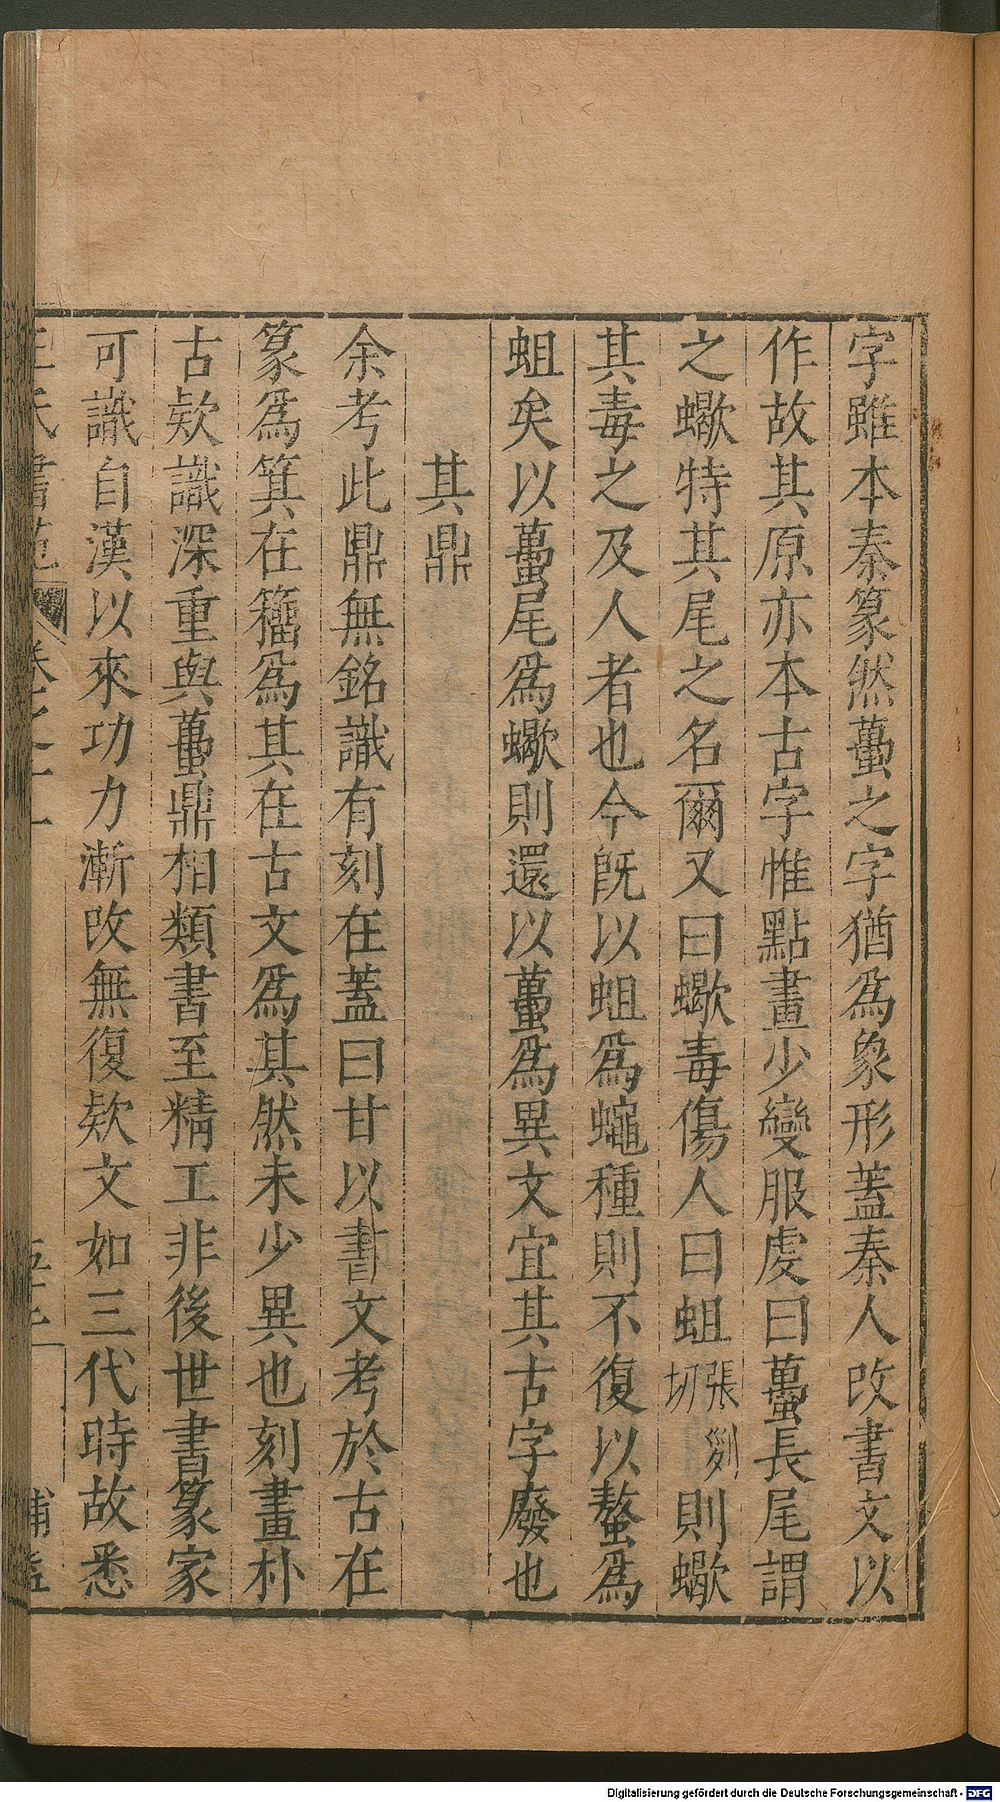 字雖本秦篆然蠆之字猶爲象形蓋秦人改書文以
作故其原亦本古字惟點畫少變服虔曰蠆長尾謂
之蠍特其尾之名爾又曰蠍毒傷人曰蛆張列切則蠍
其毒之及人者也今旣以蛆爲蠅種則不復以螫爲
蛆矣以蠆尾爲蠍則還以蠆爲異文宜其古字廢也
其鼎
余考此鼎無銘識有刻在蓋曰甘以書文考於古在
篆爲箕在籀爲其在古文爲其然未少異也刻畫朴
古欵識深重與蠆鼎相類書至精工非後世書篆家
可識自漢以來功力漸改無復欵文如三代時故悉
王氏書苑 卷之十一
Digitalisierung gefördert durch die Deutsche Forschungsgemeinschaft - DFG